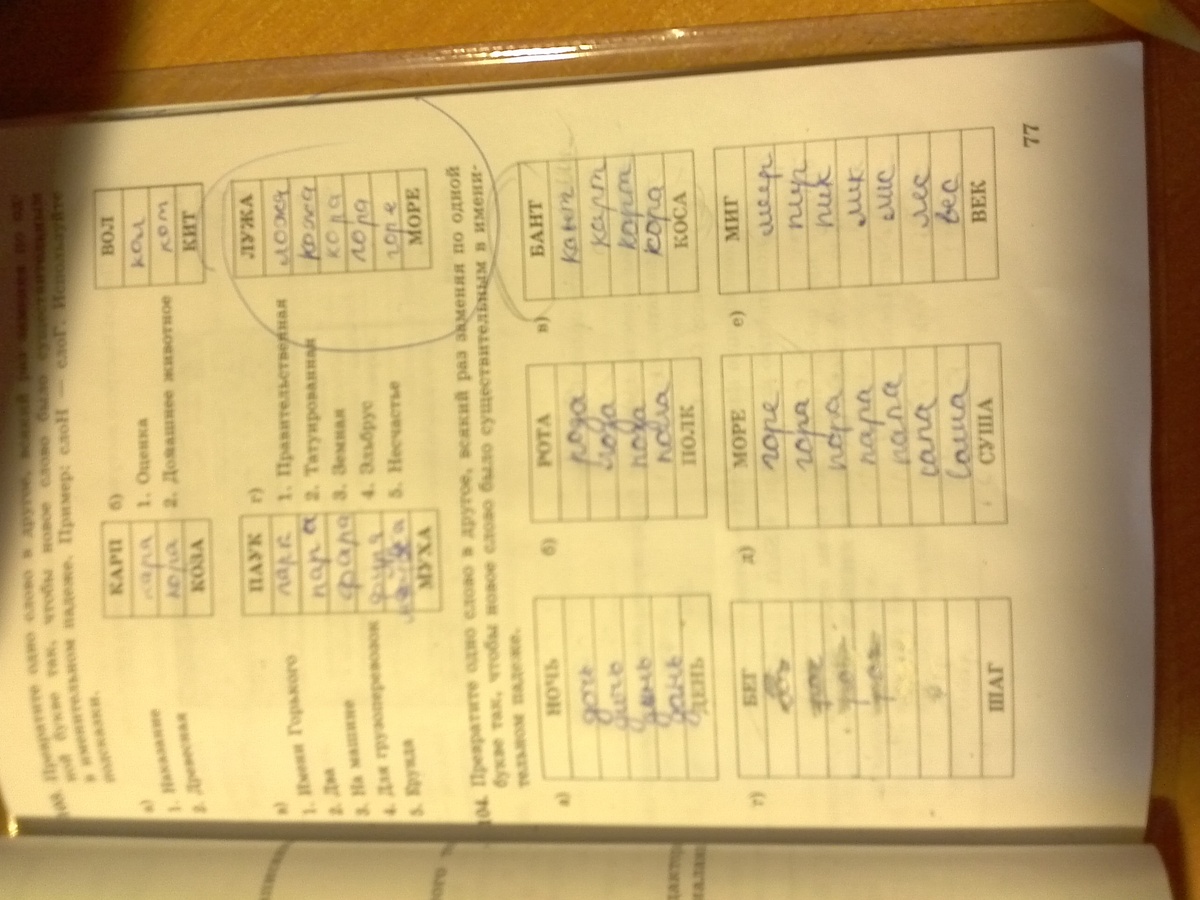 103. Превратите одно слово в другое, всякий раз заменяя по од-
ной букве так, чтобы новое слово было существительным
в именительном падеже. Пример: слоН — слоГ. Используйте
подсказки.
а)
1. Наказание
2. Древесная
КАРП
кара
кора
КОЗА
б)
1. Оценка
2. Домашнее животное
ВОЛ
кол
кот
КИТ
в)
1. Имени Горького
2. Два
3. На машине
4. Для грузоперевозок
5. Ерунда
ПАУК
парк
пара
фара
фура
МУХА
г)
1. Правительственная
2. Татуированная
3. Земная
4. Эльбрус
5. Несчастье
ЛУЖА
ложа
кожа
кора
гора
горе
МОРЕ
104. Превратите одно слово в другое, всякий раз заменяя по одной
букве так, чтобы новое слово было существительным в имени-
тельном падеже.
а)
НОЧЬ
дочь
день
дань
ДЕНЬ
б)
РОТА
роза
поза
пола
ПОЛК
в)
БАНТ
кант
карт
корт
кора
КОСА
г)
БЕГ
ШАГ
д)
МОРЕ
горе
гора
пора
пара
папа
сапа
саша
СУША
е)
МИГ
мир
пир
пик
лик
лис
лес
вес
ВЕК
77